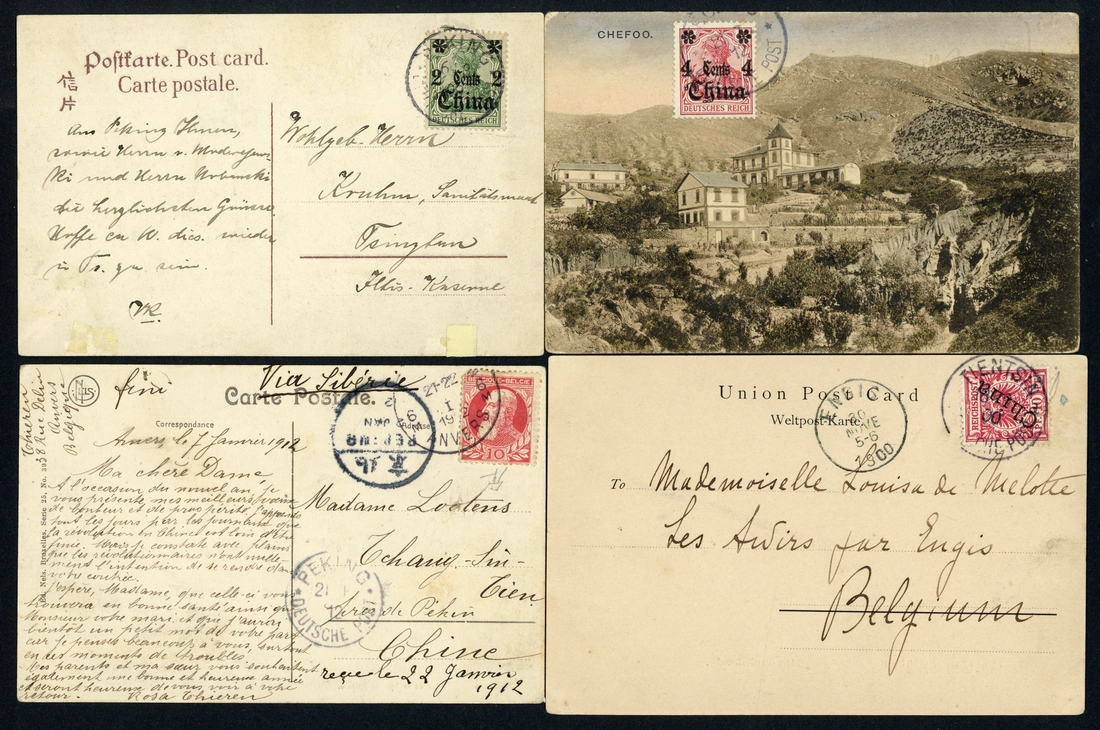 Postkarte. Post card.
Carte postale.
信片
Aus Peking Ihnen,
sowie Herrn v.
und Herrn
die herzlichsten Grüsse.
Hoffe en W. dies. wieder
in Ts. zu sein.
PEKING
2 Cents 2
China
DEUTSCHES REICH
Wohlgeb. Herrn
Kruhm, Sanitätsmaat
Tsingtau
Iltis-Kaserne
CHEFOO.
4 Cents 4
China
DEUTSCHES REICH
POST
NELS
fini
Via Sibérie
Carte Postale.
Correspondance
Adresse
Ed. Nels, Bruxelles, Serie 25, No.
Thieren
38 Rue
Anvers
Belgique
Anvers le 7 Janvier 1912
Ma chère Dame,
A l'occasion du nouvel an, je
vous présente mes meilleurs
de bonheur et de prospérité. J'apprends
tout les jours par les journaux que
la révolution en Chine est loin d'être
finie. Mais je constate avec plaisir
que les révolutionnaires n'ont nulle-
ment l'intention de se rendre dans
votre contrée.
J'espère, Madame, que celle-ci vous
trouvera en bonne santé ainsi que
Monsieur votre mari et que j'aurai
bientôt un petit mot de votre part
car je pense beaucoup à vous, surtout
en ces moments de troubles.
Mes parents et ma sœur vous souhaitent
également une bonne et heureuse année
et seront heureux de vous voir à votre
retour. Rosa Thieren
21-22
ANVERS
PEKING
JAN
北京
10
Madame Lootens
Tchang-Sin-
Tien
près de Pékin
Chine
reçue le 22 Janvier
1912
PEKING
DEUTSCHE POST
Union Postal Card
Weltpost-Karte
ENGIS
20
NOVE
5-6
1900
TIENTSIN
POST
China
REICHSPOST
To Mademoiselle Louisa de Melotte
Les Awirs par Engis
Belgium